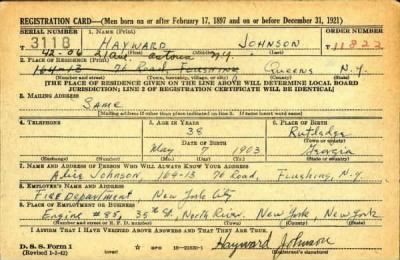 REGISTRATION CARD—(Men born on or after February 17, 1897 and on or before December 31, 1921)
SERIAL NUMBER 1. NAME (Print) ORDER NUMBER
3118 HAYWARD JOHNSON T 11822
(First) (Middle) (Last)
42-06 Astoria N.Y.
2. PLACE OF RESIDENCE (Print)
164-13 76 Road FLUSHING Queens N.Y.
(Number and street) (Town, township, village, or city) (County) (State)
[THE PLACE OF RESIDENCE GIVEN ON THE LINE ABOVE WILL DETERMINE LOCAL BOARD
JURISDICTION; LINE 2 OF REGISTRATION CERTIFICATE WILL BE IDENTICAL]
3. MAILING ADDRESS
SAME
[Mailing address if other than place indicated on line 2. If same insert word same]
4. TELEPHONE 5. AGE IN YEARS 6. PLACE OF BIRTH
38 Rutledge
DATE OF BIRTH (Town or county)
May 7 1903 Georgia
(Exchange) (Number) (Mo.) (Day) (Yr.) (State or country)
7. NAME AND ADDRESS OF PERSON WHO WILL ALWAYS KNOW YOUR ADDRESS
Alice Johnson, 164-13 76 Road, Flushing, N.Y.
8. EMPLOYER'S NAME AND ADDRESS
Fire Department New York City
9. PLACE OF EMPLOYMENT OR BUSINESS
Engine #85, 35th St, North River, New York, New York
(Number and street or R. F. D. number) (Town) (County) (State)
I AFFIRM THAT I HAVE VERIFIED ABOVE ANSWERS AND THAT THEY ARE TRUE.
D. S. S. Form 1
(Revised 1-1-42) (over) GPO 16—21630-1 Hayward Johnson
(Registrant's signature)